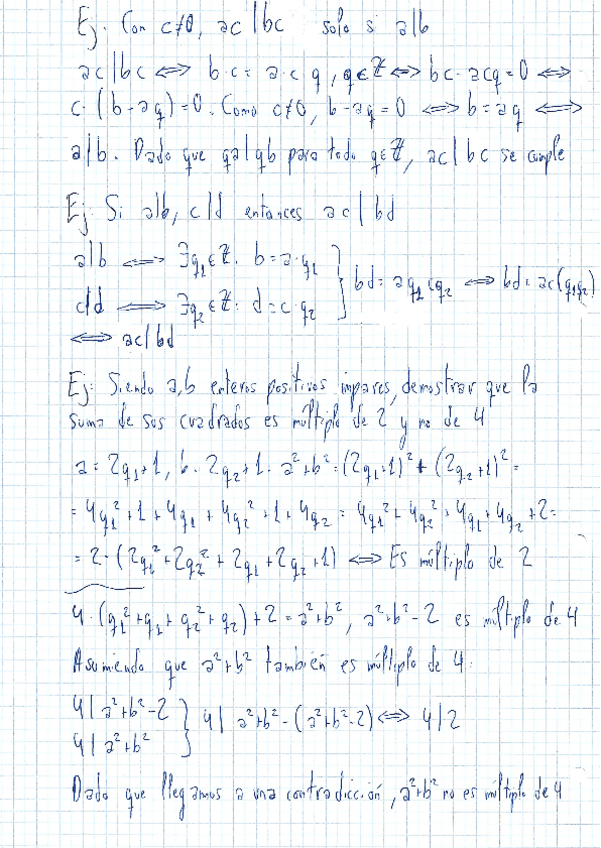 Ej. Con c≠0, ac|bc solo si a|b
ac|bc ⟺ b·c = a·c·q, q∈ℤ ⟺ bc-acq=0 ⟺
c·(b-aq)=0. Como c≠0, b-aq=0 ⟺ b=aq ⟺
a|b. Dado que qa|qb para todo q∈ℤ, ac|bc se cumple
Ej: Si a|b, c|d entonces ac|bd
a|b ⟺ ∃q₁∈ℤ: b=a·q₁
c|d ⟺ ∃q₂∈ℤ: d=c·q₂ } bd=aq₁cq₂ ⟺ bd=ac(q₁q₂)
⟺ ac|bd
Ej: Siendo a,b enteros positivos impares, demostrar que la
suma de sus cuadrados es múltiplo de 2 y no de 4
a=2q₁+1, b=2q₂+1. a²+b²=(2q₁+1)²+(2q₂+1)²=
=4q₁²+1+4q₁+4q₂²+1+4q₂=4q₁²+4q₂²+4q₁+4q₂+2=
=2·(2q₁²+2q₂²+2q₁+2q₂+1) ⟺ Es múltiplo de 2
4·(q₁²+q₁+q₂²+q₂)+2=a²+b², a²+b²-2 es múltiplo de 4
Asumiendo que a²+b² también es múltiplo de 4:
4|a²+b²-2
4|a²+b² } 4|a²+b²-(a²+b²-2) ⟺ 4|2
Dado que llegamos a una contradicción, a²+b² no es múltiplo de 4